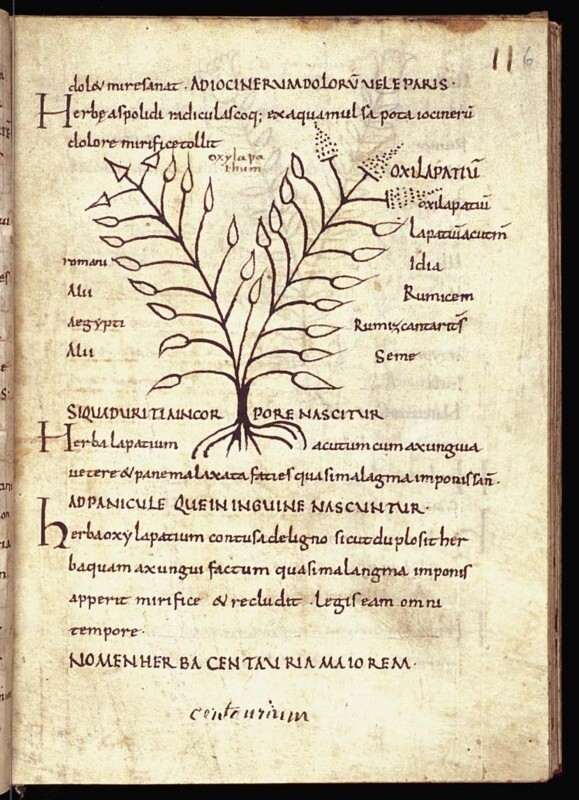 116
dolet mire sanat · AD IOCINERVM DOLORŪ VEL EPARIS ·
Herbe aspolidi radiculas coq; ex aqua mulsa pota iocinerū
dolore mirifice tollit
oxylapa
thum
OXILAPATIŪ
oxilapatiū
lapatiū acutm̄
romani Idia
Alii Rumicem
Aegypti
Alii Seme
SI QUA DURITIA IN COR PORE NASCITUR
Herba lapatium acutum cum axungia
vetere & pane malaxata facies quasi malagma imponis sañ.
AD PANICULE QUE IN INGUINE NASCUNTUR ·
herba oxylapatium contusa de ligno sicut duplosit her
baquam axungui factum quasi malangma imponis
apperit mirifice & recludit · Legis eam omni
tempore ·
NOMEN HERBA CENTAURIA MAIOREM ·
centaurium